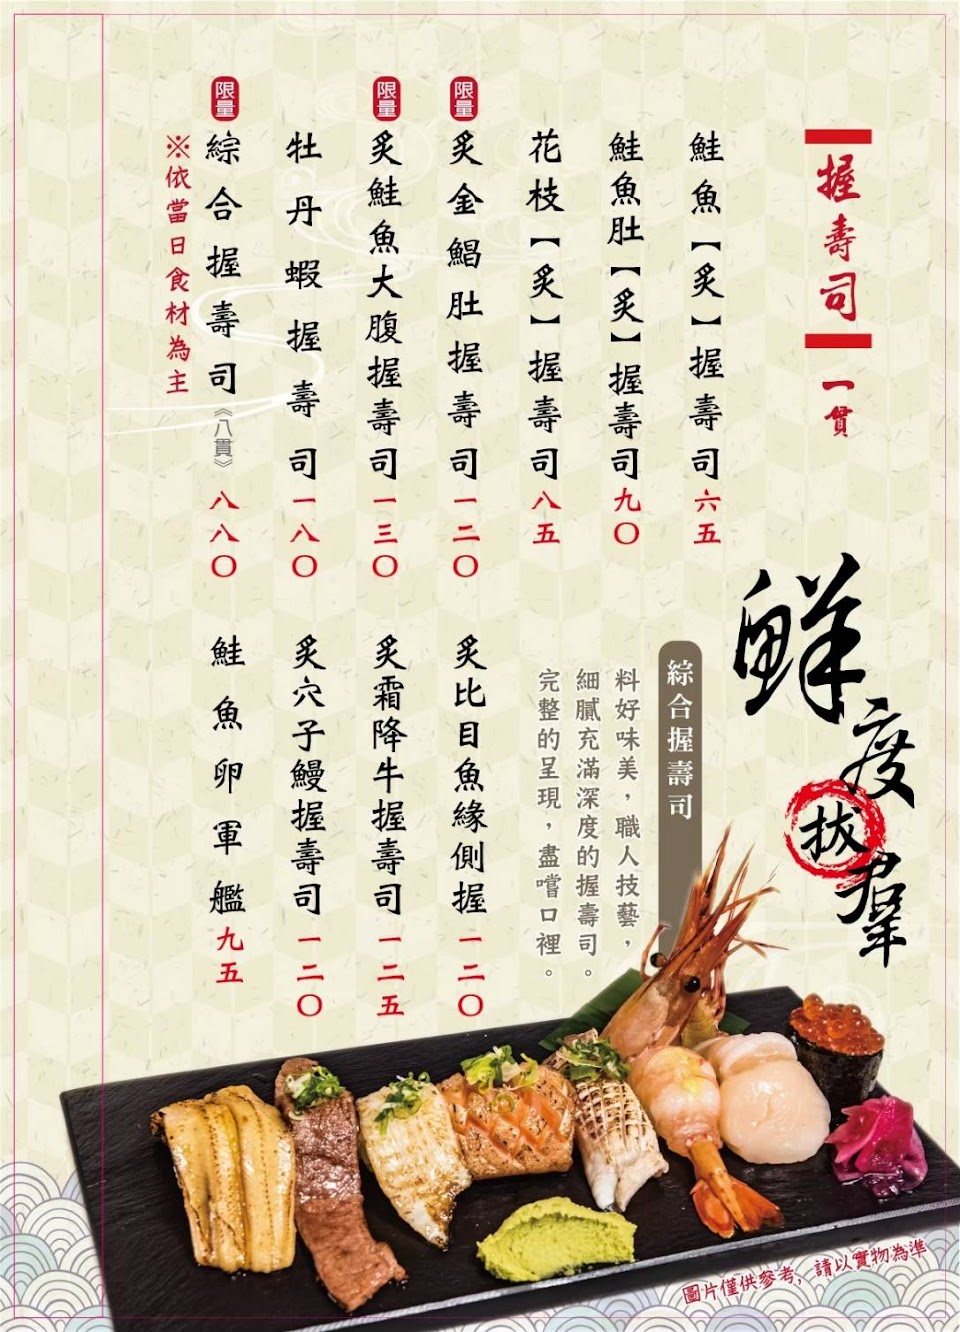 握壽司 一貫
鮭魚【炙】握壽司 六五
鮭魚肚【炙】握壽司 九〇
花枝【炙】握壽司 八五
限量 炙金鯧肚握壽司 一二〇
限量 炙鮭魚大腹握壽司 一三〇
牡丹蝦握壽司 一八〇
限量 綜合握壽司《八貫》 八八〇
※依當日食材為主
鮮度拔群
綜合握壽司
料好味美，職人技藝，
細膩充滿深度的握壽司。
完整的呈現，盡嚐口裡。
炙比目魚緣側握 一二〇
炙霜降牛握壽司 一二五
炙穴子鰻握壽司 一二〇
鮭魚卵軍艦 九五
圖片僅供參考，請以實物為準